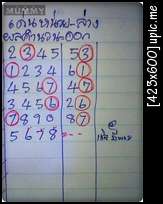 MUMMY
เดินหน่วย-ล่าง
ผลคำนวน-ออก
2 3 4 5 5 3
1 2 3 4 6 1
4 5 6 7 4 7
3 4 5 6 2 6
7 8 9 0 8 7
5 6 7 8 = - -
[423x600] upic.me